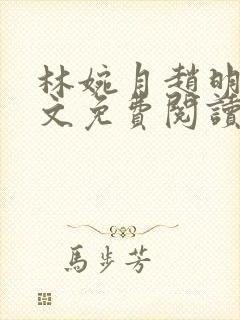 林婉月趙明
文免費閱讀
馬步芳